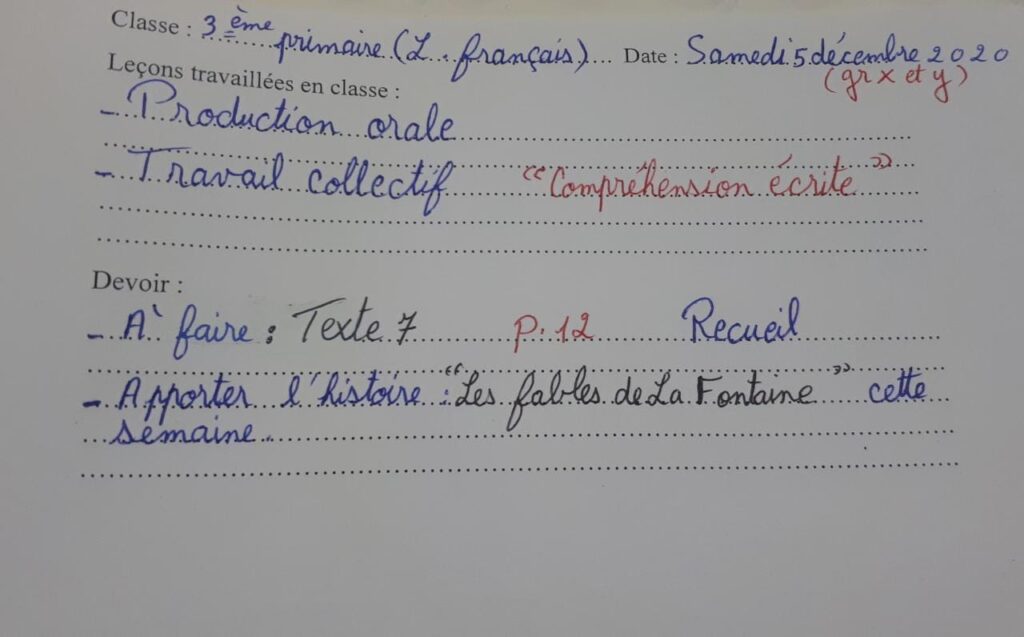 Classe : 3ème primaire (L. français) Date : Samedi 5 décembre 2020
(gr x et y)
Leçons travaillées en classe :
- Production orale
- Travail collectif "Compréhension écrite"
Devoir :
- À faire : Texte 7 p. 12 Recueil
- Apporter l'histoire : "Les fables de La Fontaine" cette
semaine.